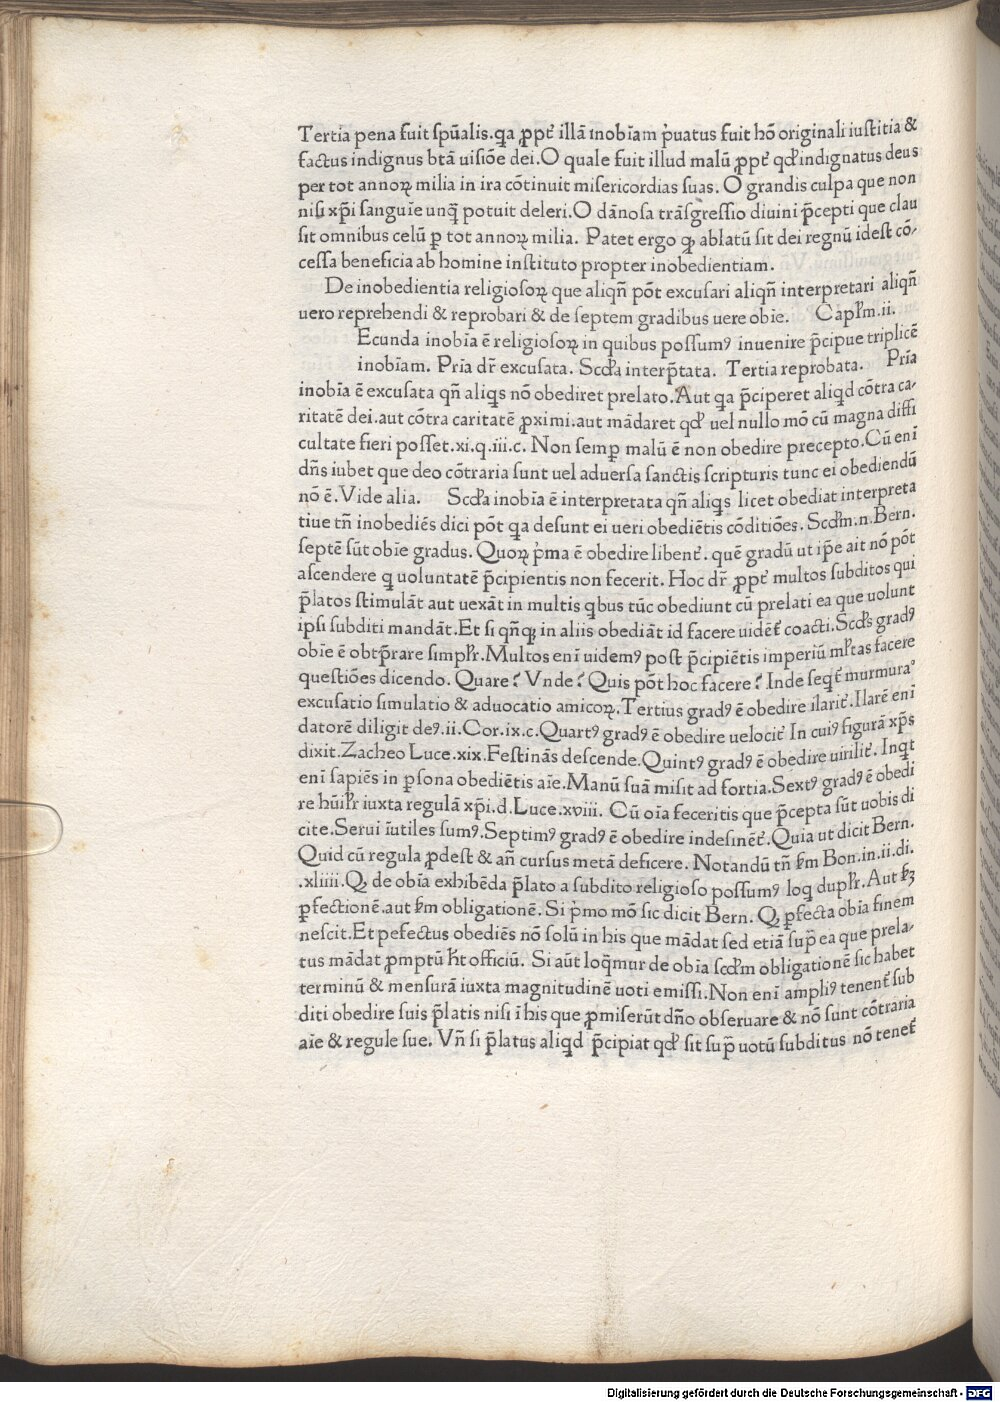 Tertia pena fuit ſpūalis.qa ꝓpt̉ illā inobīam p̉uatus fuit hō originali iuſtitia &
factus indignus btā uiſiōe dei.O quale fuit illud malū ꝓpt̉ qđ indignatus deus
per tot annoꝝ milia in ira cōtinuit miſericordias ſuas. O grandis culpa que non
niſi xp̄i ſanguīe unq̄ potuit deleri.O dānoſa trāſgreſſio diuini p̄cepti que clau
ſit omnibus celū ꝑ tot annoꝝ milia. Patet ergo ꝙ ablatū ſit dei regnū ideſt cō⸗
ceſſa beneficia ab homine inſtituto propter inobedientiam.
De inobedientia religioſoꝝ que aliqn̄ pōt excuſari aliqn̄ interpretari aliqn̄
uero reprehendi & reprobari & de ſeptem gradibus uere obīe. Capłm.ii.
Ecunda inobīa ē religioſoꝝ in quibus poſſumꝰ inuenire p̄cipue triplicē
inobīam. Prīa dr̄ excuſata. Scđa interp̄tata. Tertia reprobata. Prīa
inobīa ē excuſata qn̄ aliqs nō obediret prelato.Aut qa p̄ciperet aliqd cōtra ca⸗
ritatē dei.aut cōtra caritatē ꝓximi.aut mādaret qđ uel nullo mō cū magna diffi
cultate fieri poſſet.xi.q.iii.c. Non ſemꝑ malū ē non obedire precepto.Cū enī
dn̄s iubet que deo cōtraria ſunt uel aduerſa ſanctis ſcripturis tunc ei obediendū
nō ē.Vide alia. Scđa inobīa ē interpretata qn̄ aliqs licet obediat interpreta
tiue tn̄ inobediēs dici pōt qa deſunt ei ueri obediētis cōditiōes. Scđm.n.Bern.
ſeptē ſūt obīe gradus. Quoꝝ p̉ma ē obedire libent̉. quē gradū ut ip̄e ait nō pōt
aſcendere q uoluntatē p̄cipientis non fecerit. Hoc dr̄ ꝓpt̉ multos ſubditos qui
p̄latos ſtimulāt aut uexāt in multis qbus tūc obediunt cū prelati ea que uolunt
ipſi ſubditi mandāt.Et ſi qn̄qꝫ in aliis obediāt id facere uidēt̉ coacti.Scđs gradꝰ
obīe ē obtꝑare ſimpłr.Multos enī uidemꝰ poſt p̄cipiētis imperiū młtas facere
queſtiōes dicendo. Quare? Vnde? Quis pōt hoc facere? Inde ſeqt̉ murmura⸗
excuſatio ſimulatio & aduocatio amicoꝝ.Tertius gradꝰ ē obedire ilarit̉.Ilarē enī
datorē diligit deꝰ.ii.Cor.ix.c.Quartꝰ gradꝰ ē obedire uelocit̉ In cuiꝰ figurā xp̄s
dixit.Zacheo Luce.xix.Feſtinās deſcende.Quintꝰ gradꝰ ē obedire uirilit̉. Inqt
enī ſapiēs in ꝑſona obediētis aīe.Manū ſuā miſit ad fortia.Sextꝰ gradꝰ ē obedi
re hūiłr iuxta regulā xp̄i.d.Luce.xviii. Cū oīa feceritis que p̄cepta ſūt uobis di
cite.Serui īutiles ſumꝰ.Septimꝰ gradꝰ ē obedire indeſinēt̉.Quia ut dicit Bern.
Quid cū regula ꝓdeſt & an̄ curſus metā deficere. Notandū tn̄ ẜm Bon.in.ii.di.
.xliiii.Ꝙ de obīa exhibēda p̄lato a ſubdito religioſo poſſumꝰ loq dupłr.Aut ẜꝫ
ꝑfectionē.aut ẜm obligationē. Si p̉mo mō ſic dicit Bern. Ꝙ ꝑfecta obīa finem
neſcit.Et pefectus obediēs nō ſolū in his que mādat ſed etiā ſup̄ ea que prela⸗
tus mādat ꝓmptū hꝫt officiū. Si aūt loq̄mur de obīa ſcđm obligationē ſic habet
terminū & menſurā iuxta magnitudinē uoti emiſſi.Non enī ampliꝰ tenent̉ ſub
diti obedire ſuis p̄latis niſi ī his que ꝓmiſerūt dn̄o obſeruare & nō ſunt cōtraria
aīe & regule ſue. Vn̄ ſi p̄latus aliqd p̄cipiat qđ ſit ſup̄ uotū ſubditus nō tenet̉
Digitalisierung gefördert durch die Deutsche Forschungsgemeinschaft - DFG